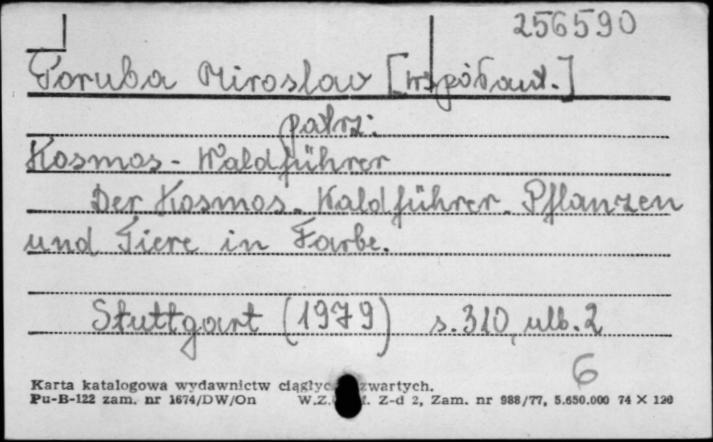 256590
Toruba Miroslav [współaut.]
patrz:
Kosmos-Waldführer
Der Kosmos-Waldführer. Pflanzen
und Tiere in Farbe.
Stuttgart (1979) s.310, ulb.2
6
Karta katalogowa wydawnictw ciągłyc zwartych.
Pu-B-122 zam. nr 1674/DW/On W.Z. Z-d 2, Zam. nr 988/77, 5.650.000 74 × 120